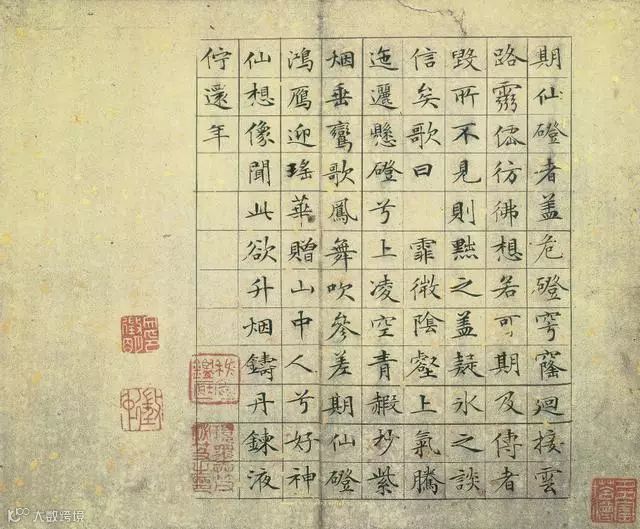 期仙磴者盖危磴穹窿迴接雲
路霛僊彷彿想若可期及傳者
毀所不見則黜之盖疑冰之談
信矣歌曰 霏微陰壑上氣騰
迤邐懸磴兮上凌空青霞杪紫
烟垂鸞歌鳳舞吹參差期仙磴
鴻鴈迎瑤華贈山中人兮好神
仙想像聞此欲升烟鑄丹鍊液
佇還年
大数跨境